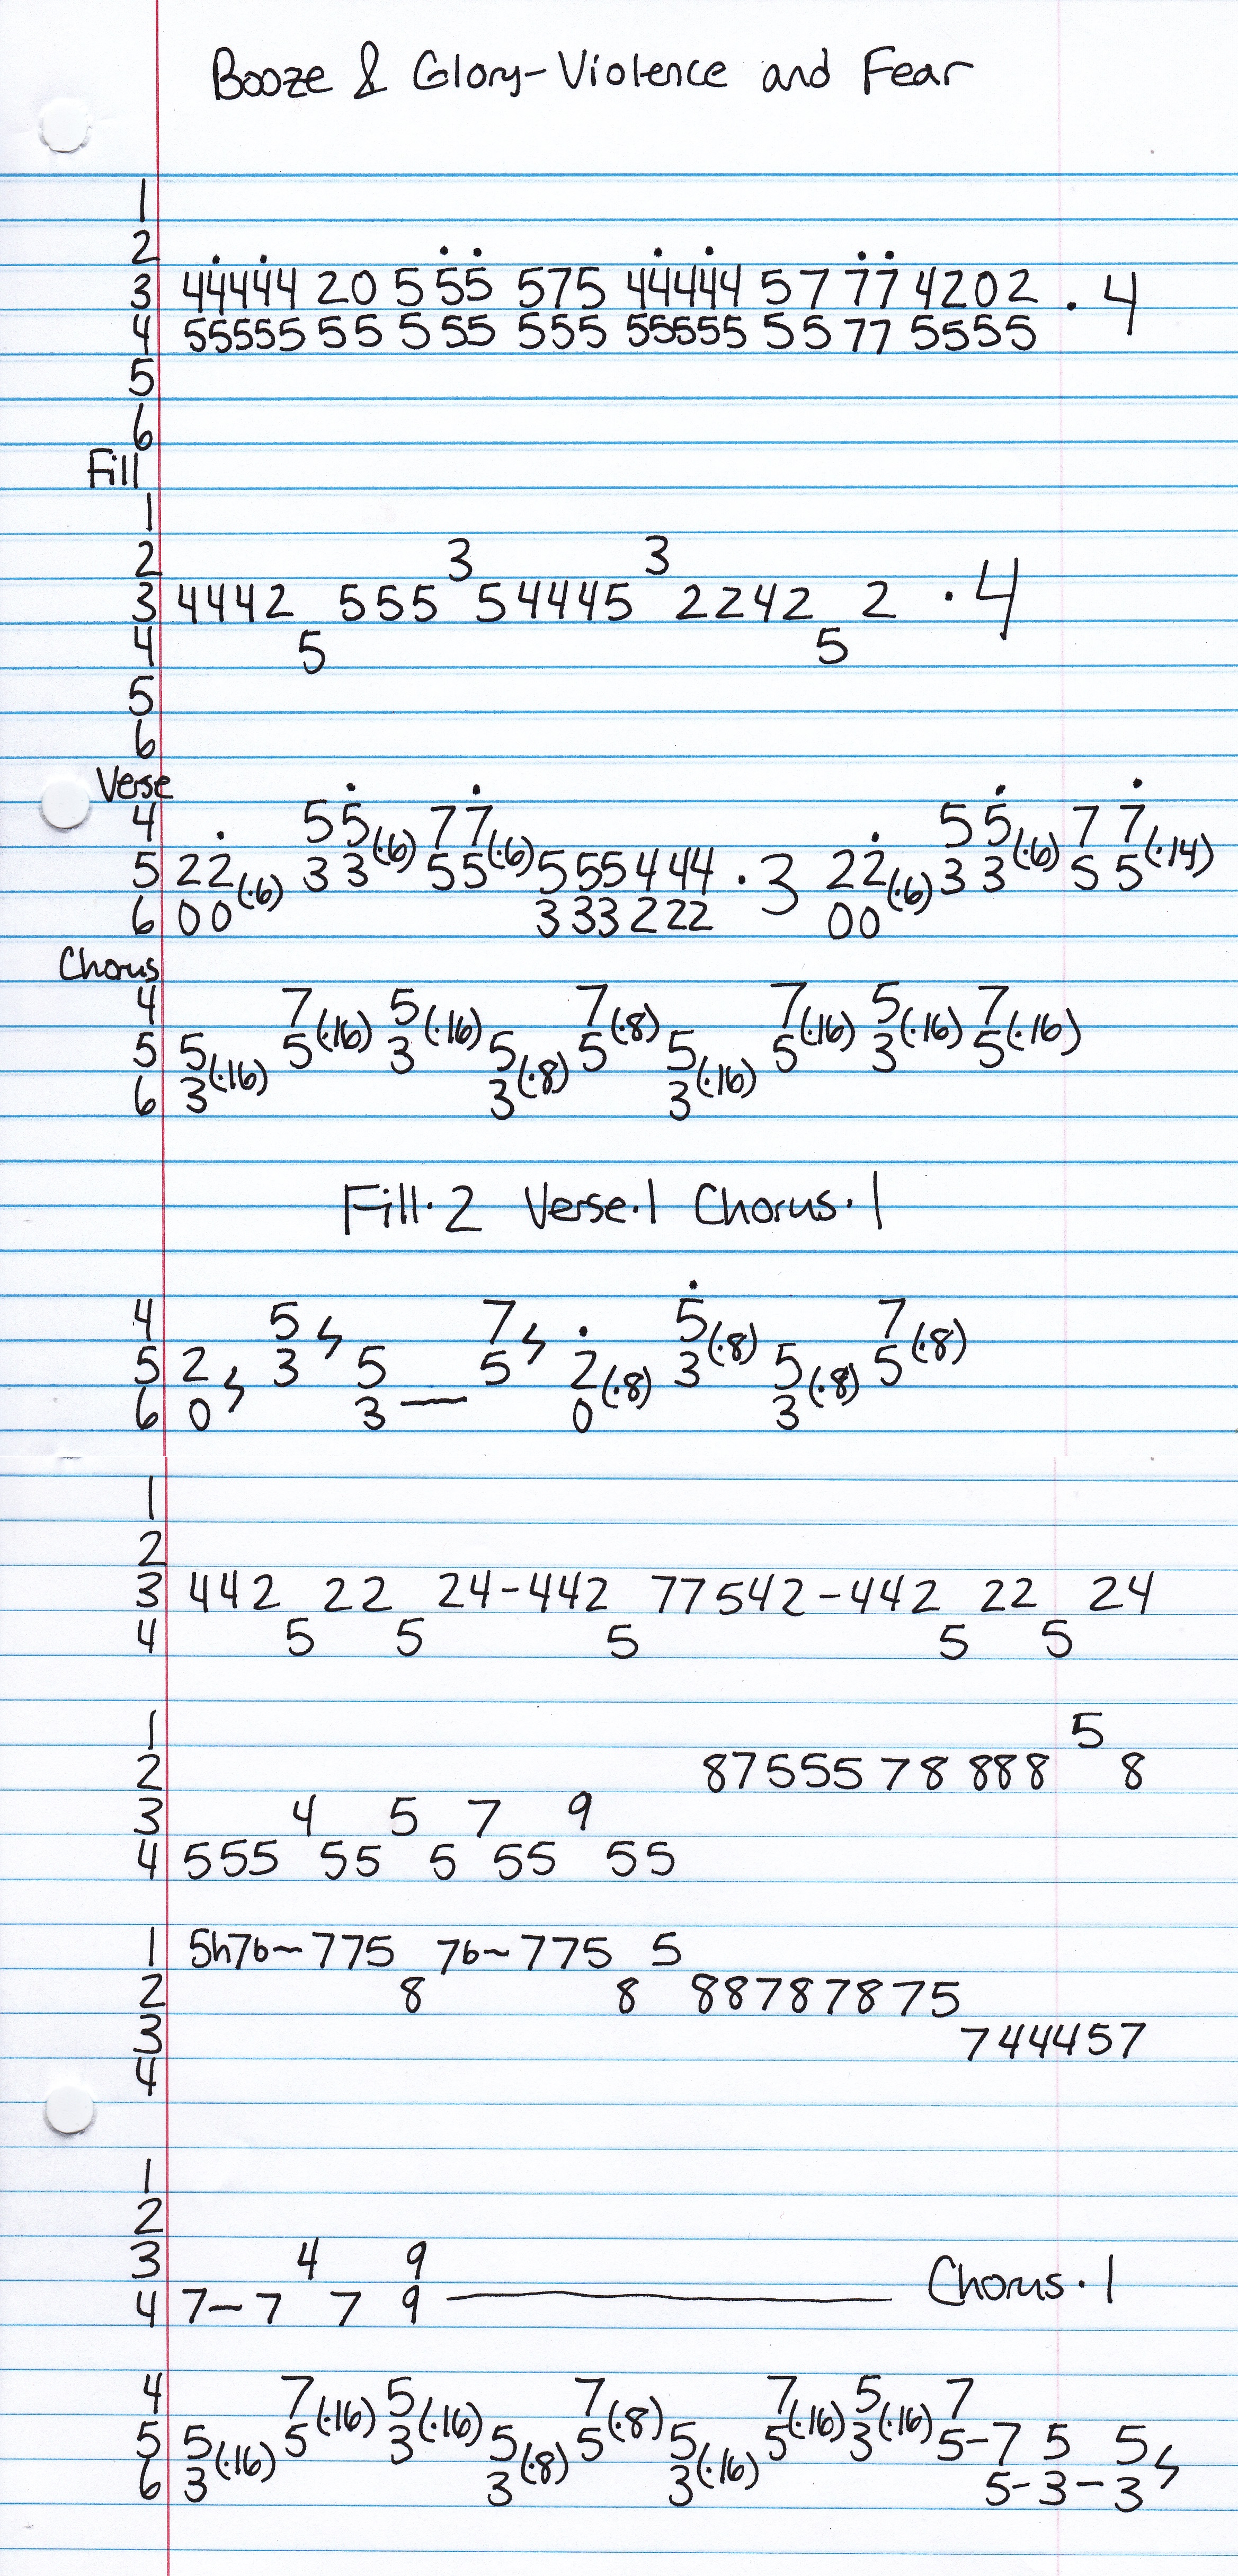 Booze & Glory-Violence and Fear
1
2
3 44444 20 5 55 575 44444 57 77 4202 · 4
4 55555 55 5 55 555 55555 55 77 5555
5
6
Fill
1
2 3 3
3 4442 555 54445 2242 2 · 4
4 5 5
5
6
Verse
4 55 77 55 77
5 22(·6) 33(·6) 55(·6) 555444 · 3 22(·6) 33(·6) 55(·14)
6 00 333222 00
Chorus
4 7 5 7 7 5 7
5 5(·16) 5(·16) 3(·16) 5(·8) 5(·8) 5(·16) 5(·16) 3(·16) 5(·16)
6 3 3 3
Fill·2 Verse·1 Chorus·1
4 5 7 5 7
5 2 3 5 5 2(·8) 3(·8) 5(·8) 5(·8)
6 0 3 — 0 3
1
2
3 442 22 24-442 77542-442 22 24
4 5 5 5 5 5
1 5
2 87555 78 888 8
3 4 5 7 9
4 555 55 5 55 55
1 5h7b~775 7b~775 5
2 8 8 88787875
3 744457
4
1
2
3 4 9
4 7-7 7 9 — Chorus·1
4 7 5 7 7 5 7
5 5(·16) 5(·16) 3(·16) 5(·8) 5(·8) 5(·16) 5(·16) 3(·16) 5-7 5 5
6 3 3 3 5-3-3